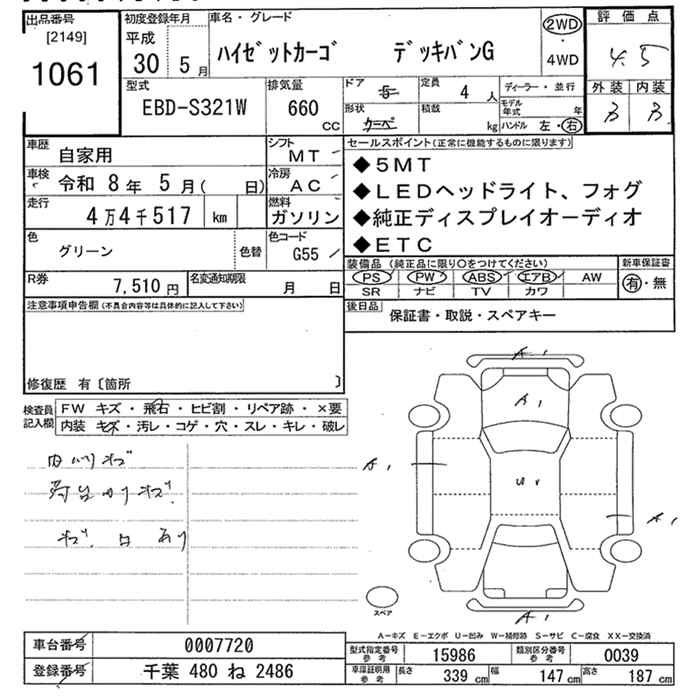 出品番号
[2149]
1061
初度登録年月
平成
30 5月
車名・グレード
ハイゼットカーゴ デッキバンG
2WD
・
4WD
評価点
4.5
外装 内装
B B
型式
EBD-S321W
排気量
660
CC
ドア
5
形状
クーペ
定員
4人
積載
kg
ディーラー・並行
モデル年式
年
ハンドル 左・右
車歴
自家用
シフト
MT
車検
令和 8年 5月( 日)
冷房
AC
走行
4万4千517 km
燃料
ガソリン
色
グリーン
色替
色コード
G55
R券
7,510円
名変通知期限
月 日
セールスポイント(正常に機能するものに限ります)
◆5MT
◆LEDヘッドライト、フォグ
◆純正ディスプレイオーディオ
◆ETC
装備品 (純正品に限り○をつけてください)
PS PW ABS エアB AW
SR ナビ TV カワ
新車保証書
有・無
後日品
保証書・取説・スペアキー
注意事項申告欄(不具合内容等は具体的に記入して下さい)
修復歴 有〔箇所 〕
検査員記入欄
FW キズ・飛石・ヒビ割・リペア跡・×要
内装 キズ・汚レ・コゲ・穴・スレ・キレ・破レ
内ハリキズ
荷台内リキズ
キズ、凹あり
A1
A1
A1
U1
A1
A1
スペア
A-キズ E-エクボ U-凹み W-補修跡 S-サビ C-腐食 XX-交換済
車台番号
0007720
登録番号
千葉 480 ね 2486
型式指定番号
参考
15986
類別区分番号
参考
0039
車庫証明用
参考
長さ
339 cm
幅
147 cm
高さ
187 cm